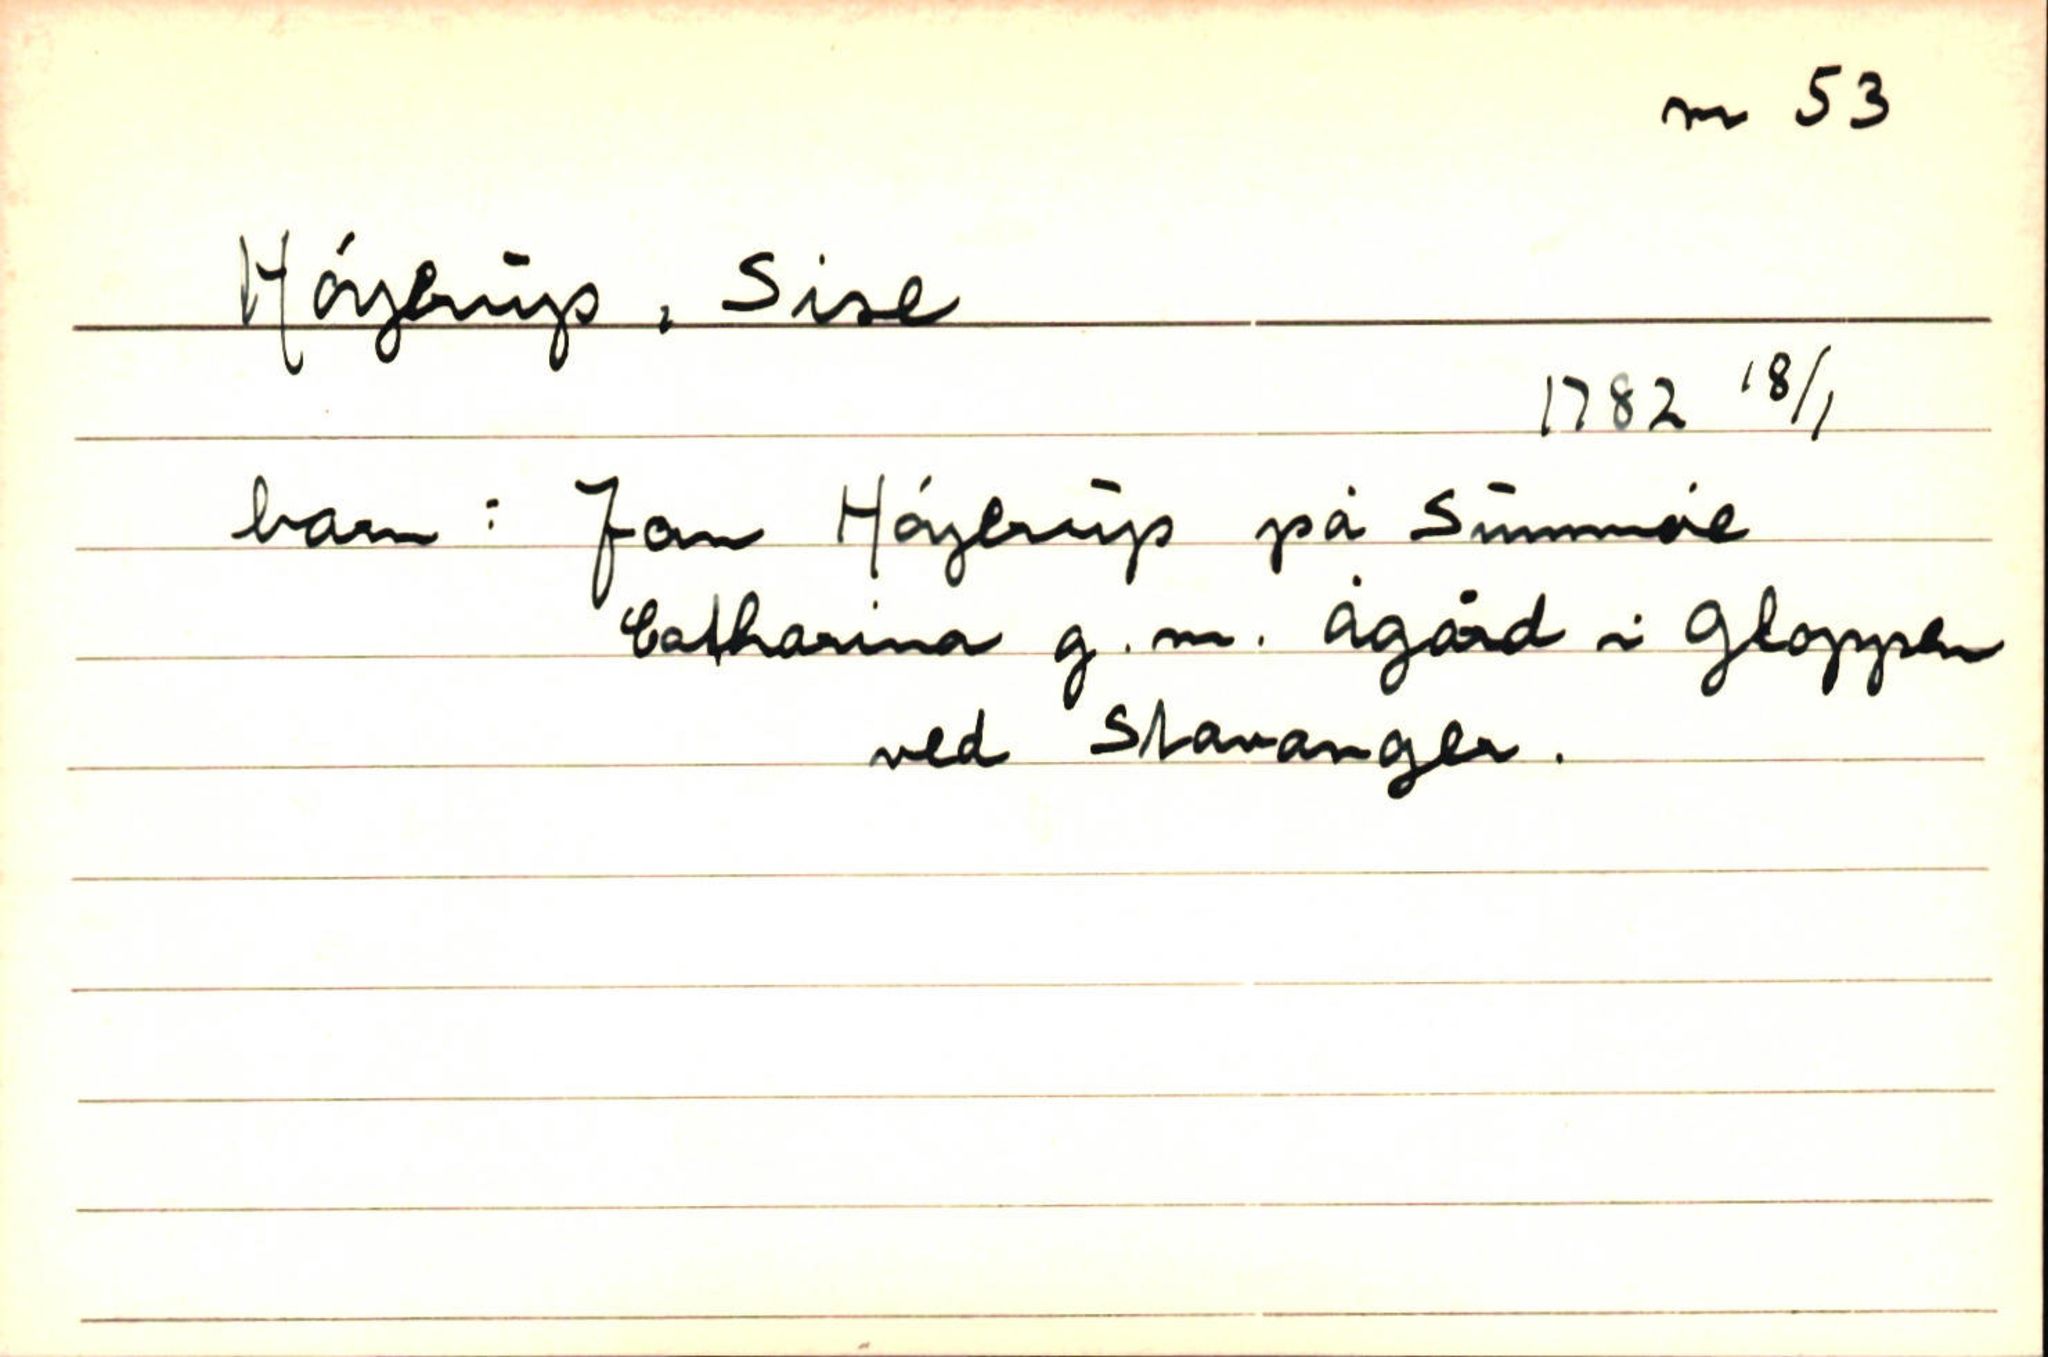 m 53
Höyerup, Sise
1782 18/1
barn: Jan Höyerup på Summöe
Catharina g. m. Ågård i Gloppen
ved Stavanger.